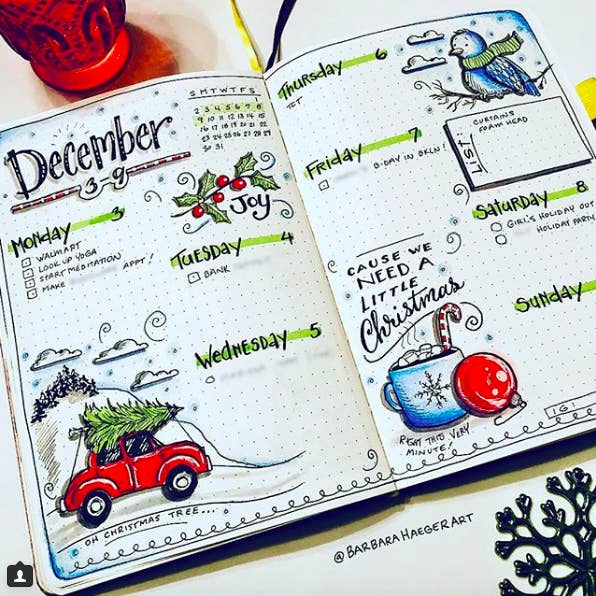 December
3-9
S M T W T F S
1
2 3 4 5 6 7 8
9 10 11 12 13 14 15
16 17 18 19 20 21 22
23 24 25 26 27 28 29
30 31
JOY
MONDAY 3
WALMART
LOOK UP YOGA
START MEDITATION
MAKE APPT!
TUESDAY 4
BANK
WEDNESDAY 5
OH CHRISTMAS TREE...
THURSDAY 6
TET
LIST:
CURTAINS
FOAM HEAD
FRIDAY 7
B-DAY IN BKLN!
SATURDAY 8
GIRL'S HOLIDAY OUT
HOLIDAY PARTY
SUNDAY
CAUSE WE
NEED A
LITTLE
Christmas
RIGHT THIS VERY
MINUTE!
161
@BARBARAHAEGERART